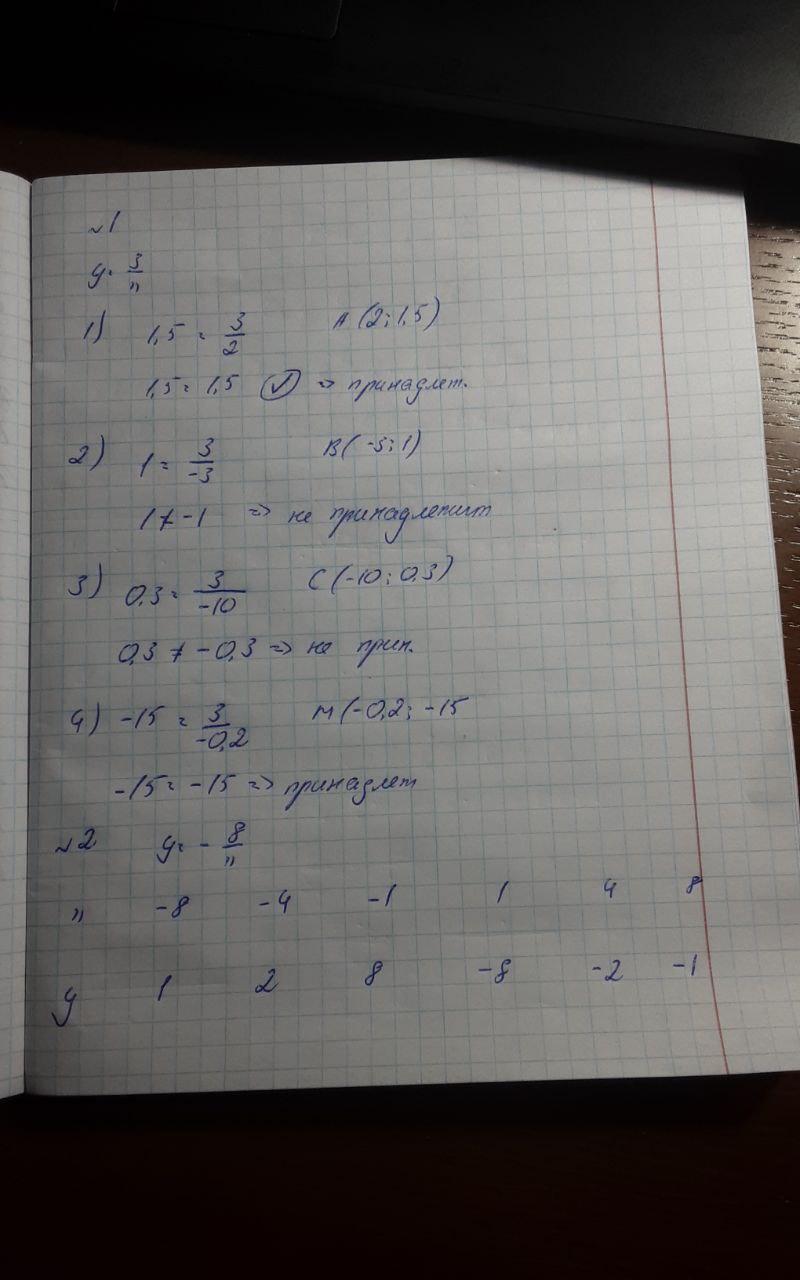 №1
y = 3/x
1) 1,5 = 3/2 A (2; 1,5)
1,5 = 1,5 ✓ => принадлет.
2) 1 = 3/-3 B (-3; 1)
1 ≠ -1 => не принадлежит
3) 0,3 = 3/-10 C (-10; 0,3)
0,3 ≠ -0,3 => не прин.
4) -15 = 3/-0,2 M (-0,2; -15
-15 = -15 => принадлет
№2 y = - 8/x
x -8 -4 -1 1 4 8
y 1 2 8 -8 -2 -1